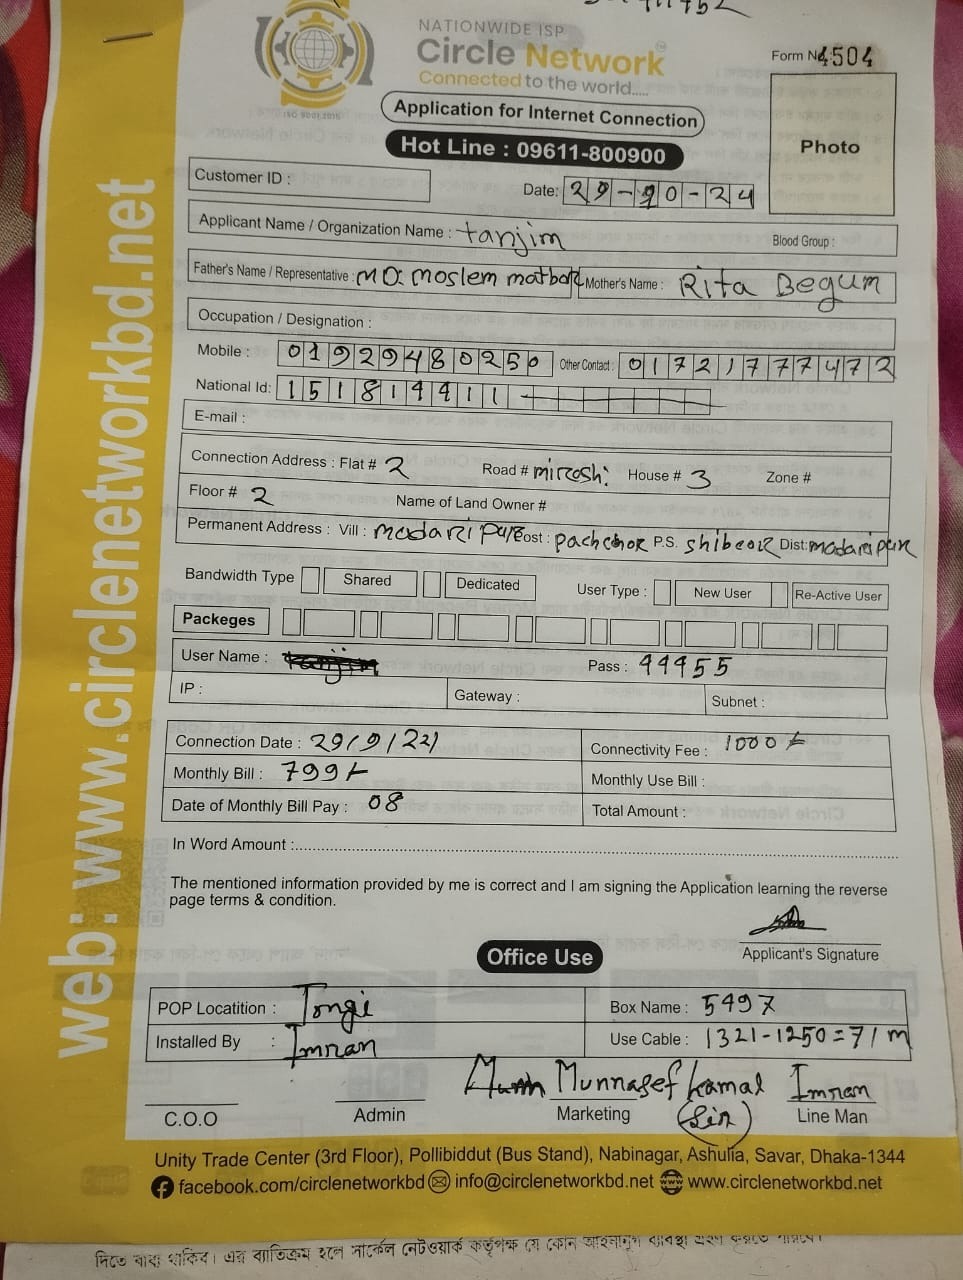 NATIONWIDE ISP
Circle Network
Connected to the world.....
ISO 9001:2015
Form No 4504
Application for Internet Connection
Hot Line : 09611-800900
Photo
Customer ID :
Date: 29-10-24
Applicant Name / Organization Name : tanjim Blood Group :
Father's Name / Representative : MD. moslem matbor Mother's Name : Rita Begum
Occupation / Designation :
Mobile : 01929480250 Other Contact : 01721777472
National Id: 151814411
E-mail :
Connection Address : Flat # 2 Road # House # 3 Zone #
Floor # 2 Name of Land Owner #
Permanent Address : Vill : madaripur Post : pachchor P.S. shibcor Dist: madaripur
Bandwidth Type Shared Dedicated User Type : New User Re-Active User
Packeges
User Name : Pass : 44455
IP : Gateway : Subnet :
Connection Date : Connectivity Fee : 1000/-
Monthly Bill : 799/- Monthly Use Bill :
Date of Monthly Bill Pay : 08 Total Amount :
In Word Amount :
The mentioned information provided by me is correct and I am signing the Application learning the reverse
page terms & condition.
Applicant's Signature
Office Use
POP Locatition : Tongi Box Name : 5497
Installed By : Imran Use Cable : 1321-1250=71m
Munnasef kamal Imran
C.O.O Admin Marketing (Sir) Line Man
Unity Trade Center (3rd Floor), Pollibiddut (Bus Stand), Nabinagar, Ashulia, Savar, Dhaka-1344
facebook.com/circlenetworkbd info@circlenetworkbd.net www.circlenetworkbd.net
web: www.circlenetworkbd.net
দিতে বাধ্য থাকিব। এর ব্যতিক্রম হলে সার্কেল নেটওয়ার্ক কর্তৃপক্ষ যে কোন আইনানুগ ব্যবস্থা গ্রহণ করতে পারবে।